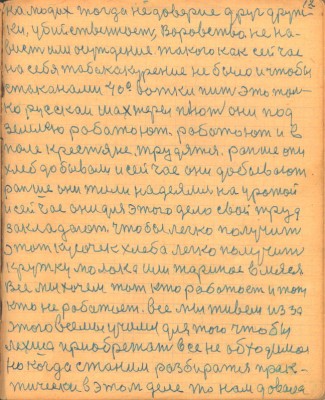 на людях тогда недоверие друг друж-
ки, убийственост, Воровства не на-
висти или осуждение такого как сейчас
на себя табакакурение не было и чтобы
стаканами 40° вотки пит это тол-
ко русскаи шахтеры пют они под
землею работают. работают и в
поле крестяне, трудятся. ранше они
хлеб добывали и сейчас они добывают
ранше они жили надеями на урожай
и сейчас они для этого дело свой труд
закладают. чтобы легко получит
этот кусочек хлеба легко получит
крупку молока или жареное в мясе
все мы хочем тот кто работает и тот
кто не работает. все мы живем из за
этого всему учимся для того чтобы
лехше приобретат все необходимое
но когда станим разбиратся прак-
тически в этом деле то нам довася